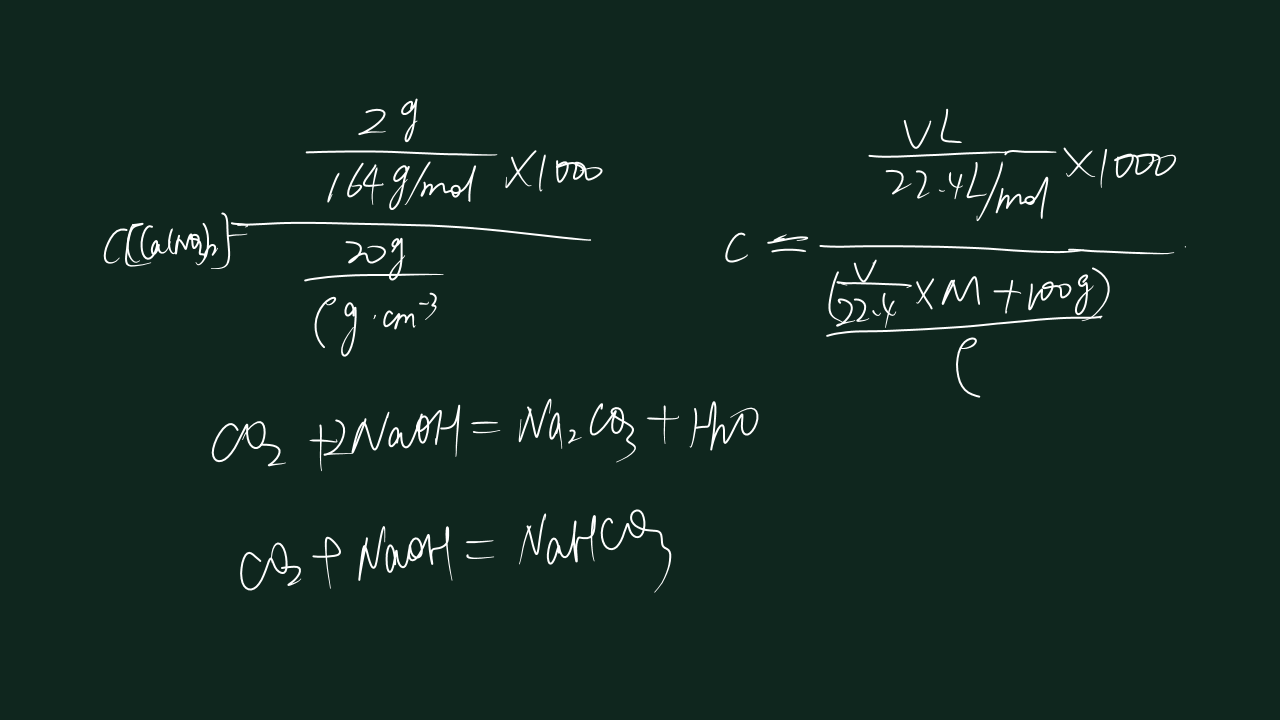 C[Ca(NO3)2] = (2g / 164g/mol × 1000) / (20g / ρg·cm⁻³)
C = (VL / 22.4L/mol × 1000) / ((V/22.4 × M + 100g) / ρ)
CO2 + 2NaOH = Na2CO3 + H2O
CO2 + NaOH = NaHCO3